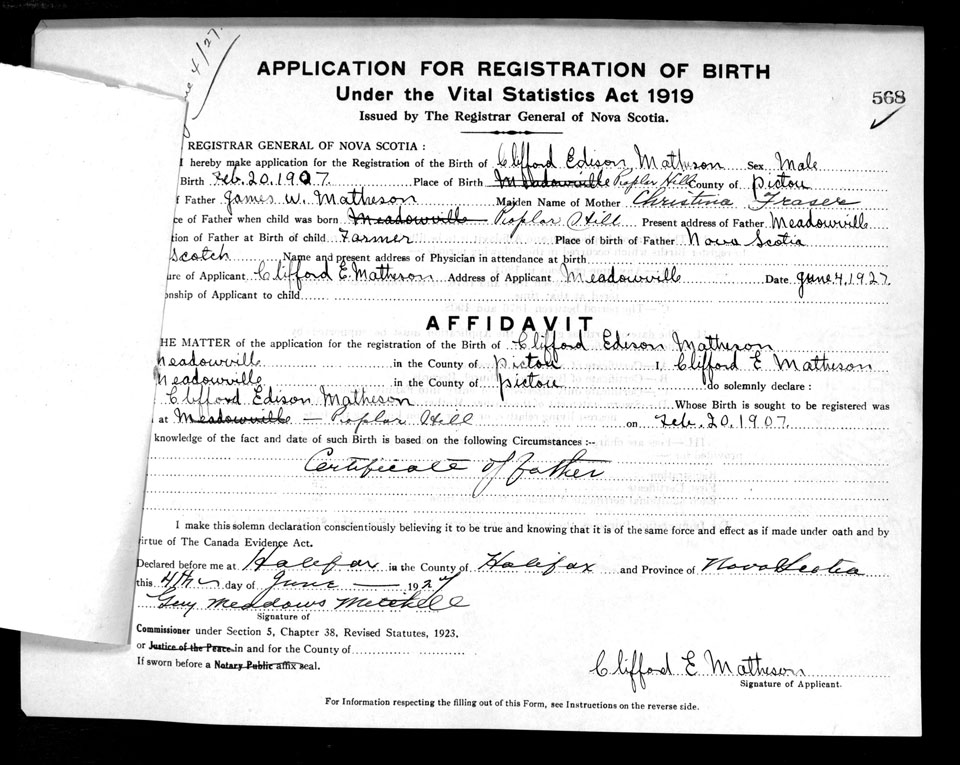 4/27.
APPLICATION FOR REGISTRATION OF BIRTH
Under the Vital Statistics Act 1919
568
Issued by The Registrar General of Nova Scotia.
REGISTRAR GENERAL OF NOVA SCOTIA :
I hereby make application for the Registration of the Birth of Clifford Edison Matheson Sex Male
Birth Feb. 20. 1907. Place of Birth Meadowville Poplar Hill County of Pictou
f Father James W. Matheson Maiden Name of Mother Christina Fraser
ce of Father when child was born Meadowville Poplar Hill Present address of Father Meadowville
tion of Father at Birth of child Farmer Place of birth of Father Nova Scotia
Scotch Name and present address of Physician in attendance at birth
ure of Applicant Clifford E. Matheson Address of Applicant Meadowville Date June 4, 1927.
onship of Applicant to child
AFFIDAVIT
HE MATTER of the application for the registration of the Birth of Clifford Edison Matheson
Meadowville in the County of Pictou I, Clifford E Matheson
Meadowville in the County of Pictou do solemnly declare :
Clifford Edison Matheson Whose Birth is sought to be registered was
at Meadowville — Poplar Hill on Feb. 20. 1907.
knowledge of the fact and date of such Birth is based on the following Circumstances :--
Certificate of father
I make this solemn declaration conscientiously believing it to be true and knowing that it is of the same force and effect as if made under oath and by
irtue of The Canada Evidence Act.
Declared before me at Halifax in the County of Halifax and Province of Nova Scotia
this 4th day of June — 1927
Guy Meadows Mitchell
Signature of
Commissioner under Section 5, Chapter 38, Revised Statutes, 1923,
or Justice of the Peace in and for the County of
If sworn before a Notary Public affix seal.
Clifford E Matheson
Signature of Applicant.
For Information respecting the filling out of this Form, see Instructions on the reverse side.